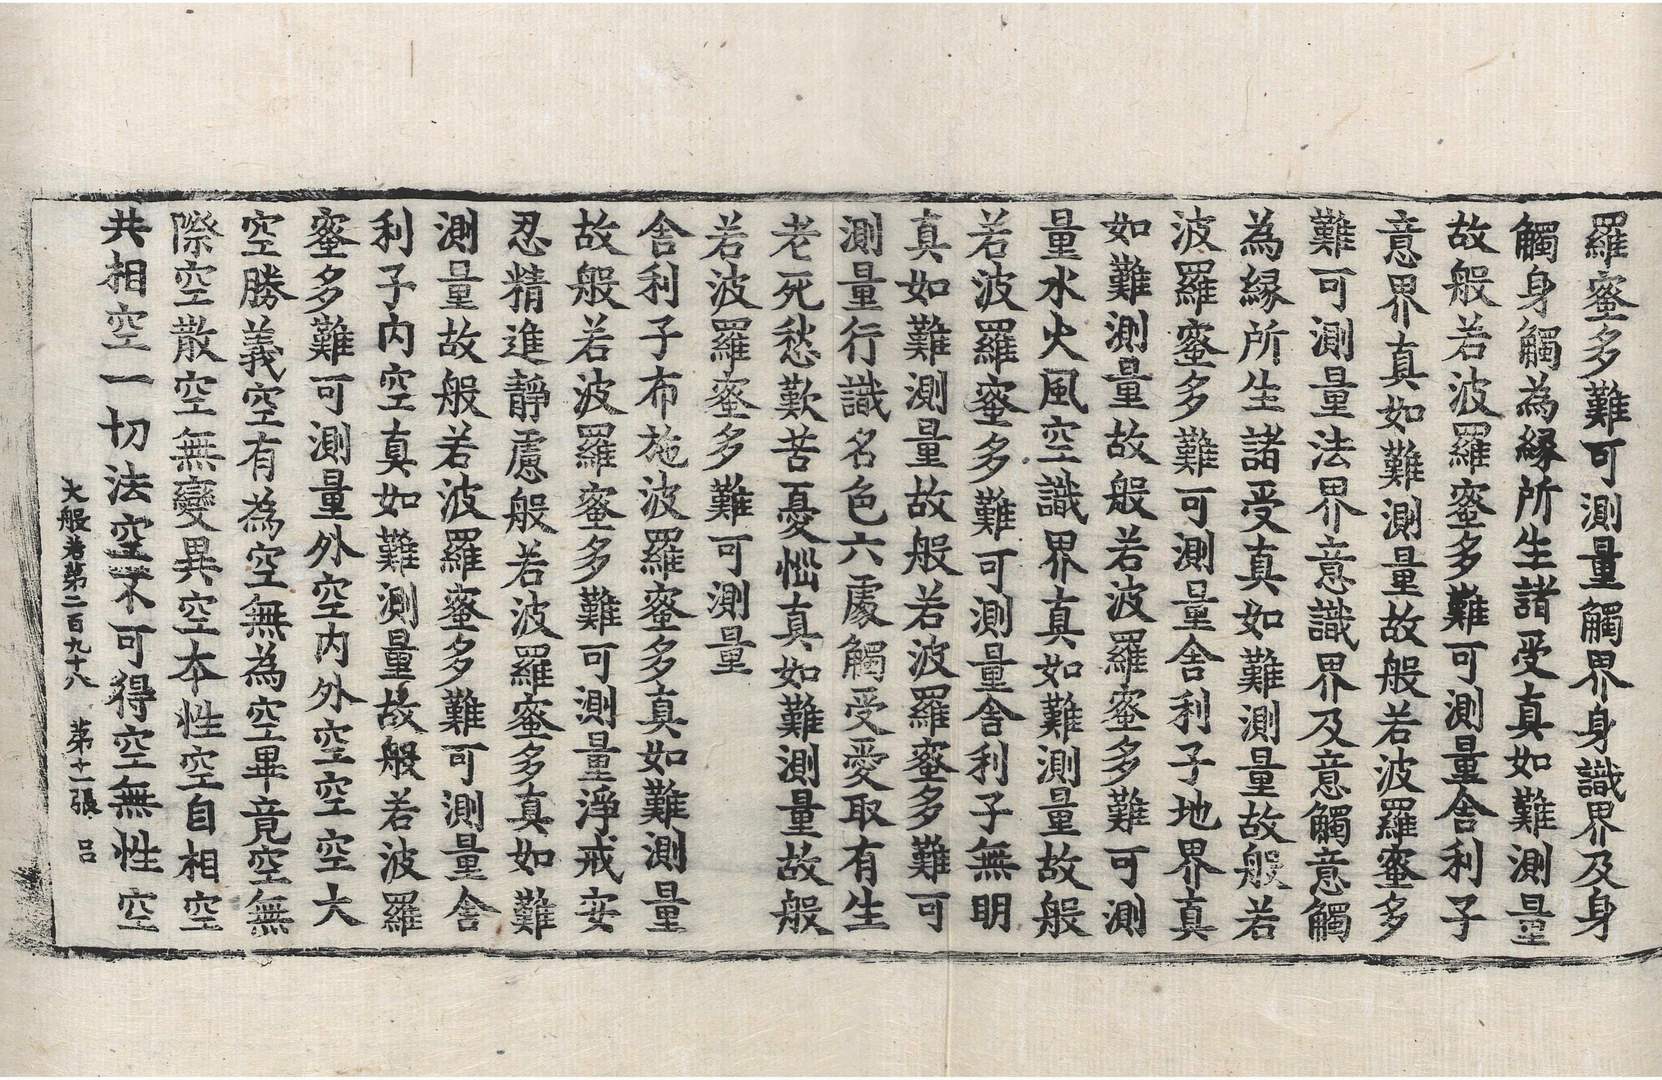 羅蜜多難可測量觸界身識界及身
觸身觸為緣所生諸受真如難測量
故般若波羅蜜多難可測量舍利子
意界真如難測量故般若波羅蜜多
難可測量法界意識界及意觸意觸
為緣所生諸受真如難測量故般若
波羅蜜多難可測量舍利子地界真
如難測量故般若波羅蜜多難可測
量水火風空識界真如難測量故般
若波羅蜜多難可測量舍利子無明
真如難測量故般若波羅蜜多難可
測量行識名色六處觸受愛取有生
老死愁歎苦憂惱真如難測量故般
若波羅蜜多難可測量
舍利子布施波羅蜜多真如難測量
故般若波羅蜜多難可測量淨戒安
忍精進靜慮般若波羅蜜多真如難
測量故般若波羅蜜多難可測量舍
利子內空真如難測量故般若波羅
蜜多難可測量外空內外空空空大
空勝義空有為空無為空畢竟空無
際空散空無變異空本性空自相空
共相空一切法空不可得空無性空
大般若第二百九十八 第十一張 呂